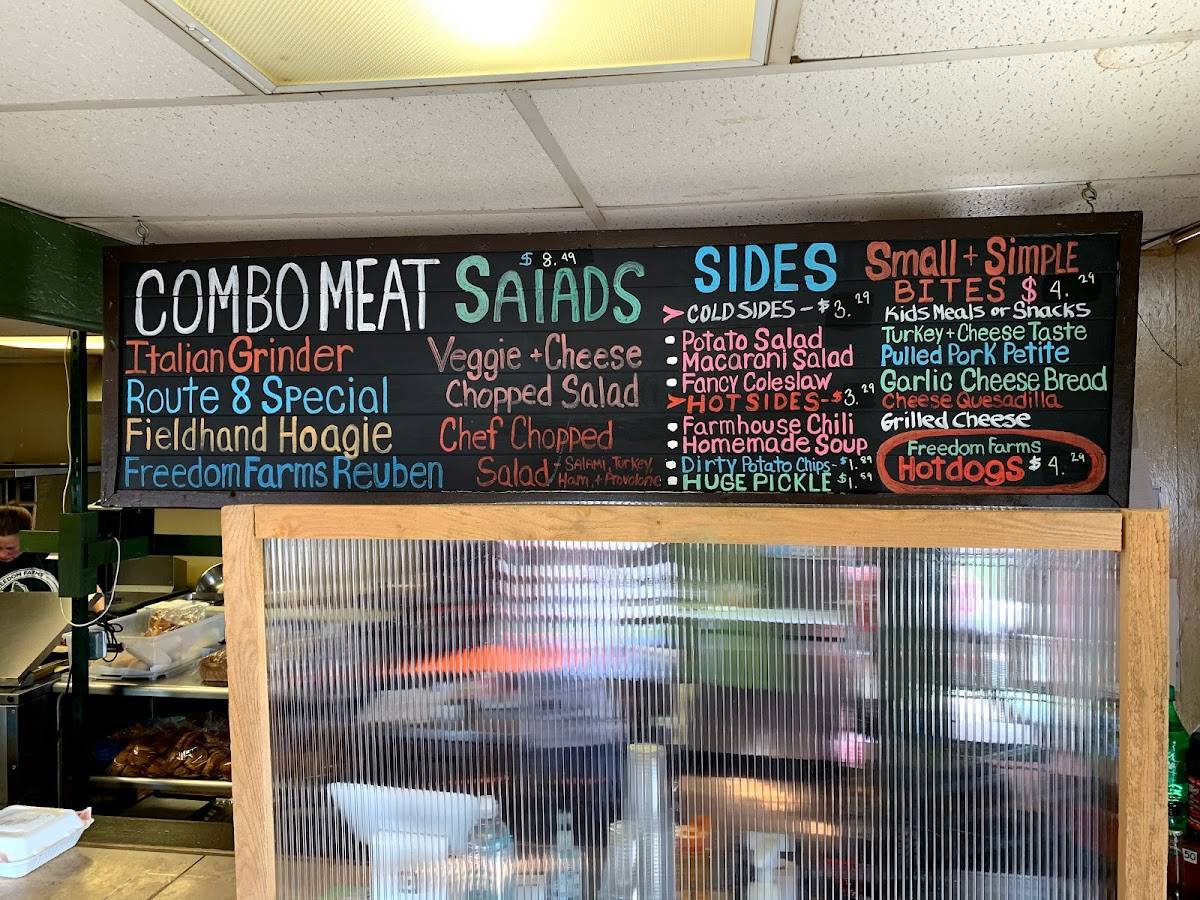 COMBO MEAT
Italian Grinder
Route 8 Special
Fieldhand Hoagie
Freedom Farms Reuben
$8.49
SAlADS
Veggie + Cheese
Chopped Salad
Chef Chopped
Salad - Salami, Turkey,
Ham, + Provolone
SIDES
COLD SIDES - $3.29
Potato Salad
Macaroni Salad
Fancy Coleslaw
HOT SIDES - $3.29
Farmhouse Chili
Homemade Soup
Dirty Potato Chips - $1.89
HUGE PICKLE $1.59
Small + Simple
BITES $4.29
Kids Meals or Snacks
Turkey + Cheese Taste
Pulled Pork Petite
Garlic Cheese Bread
Cheese Quesadilla
Grilled Cheese
Freedom Farms
Hotdogs $4.29